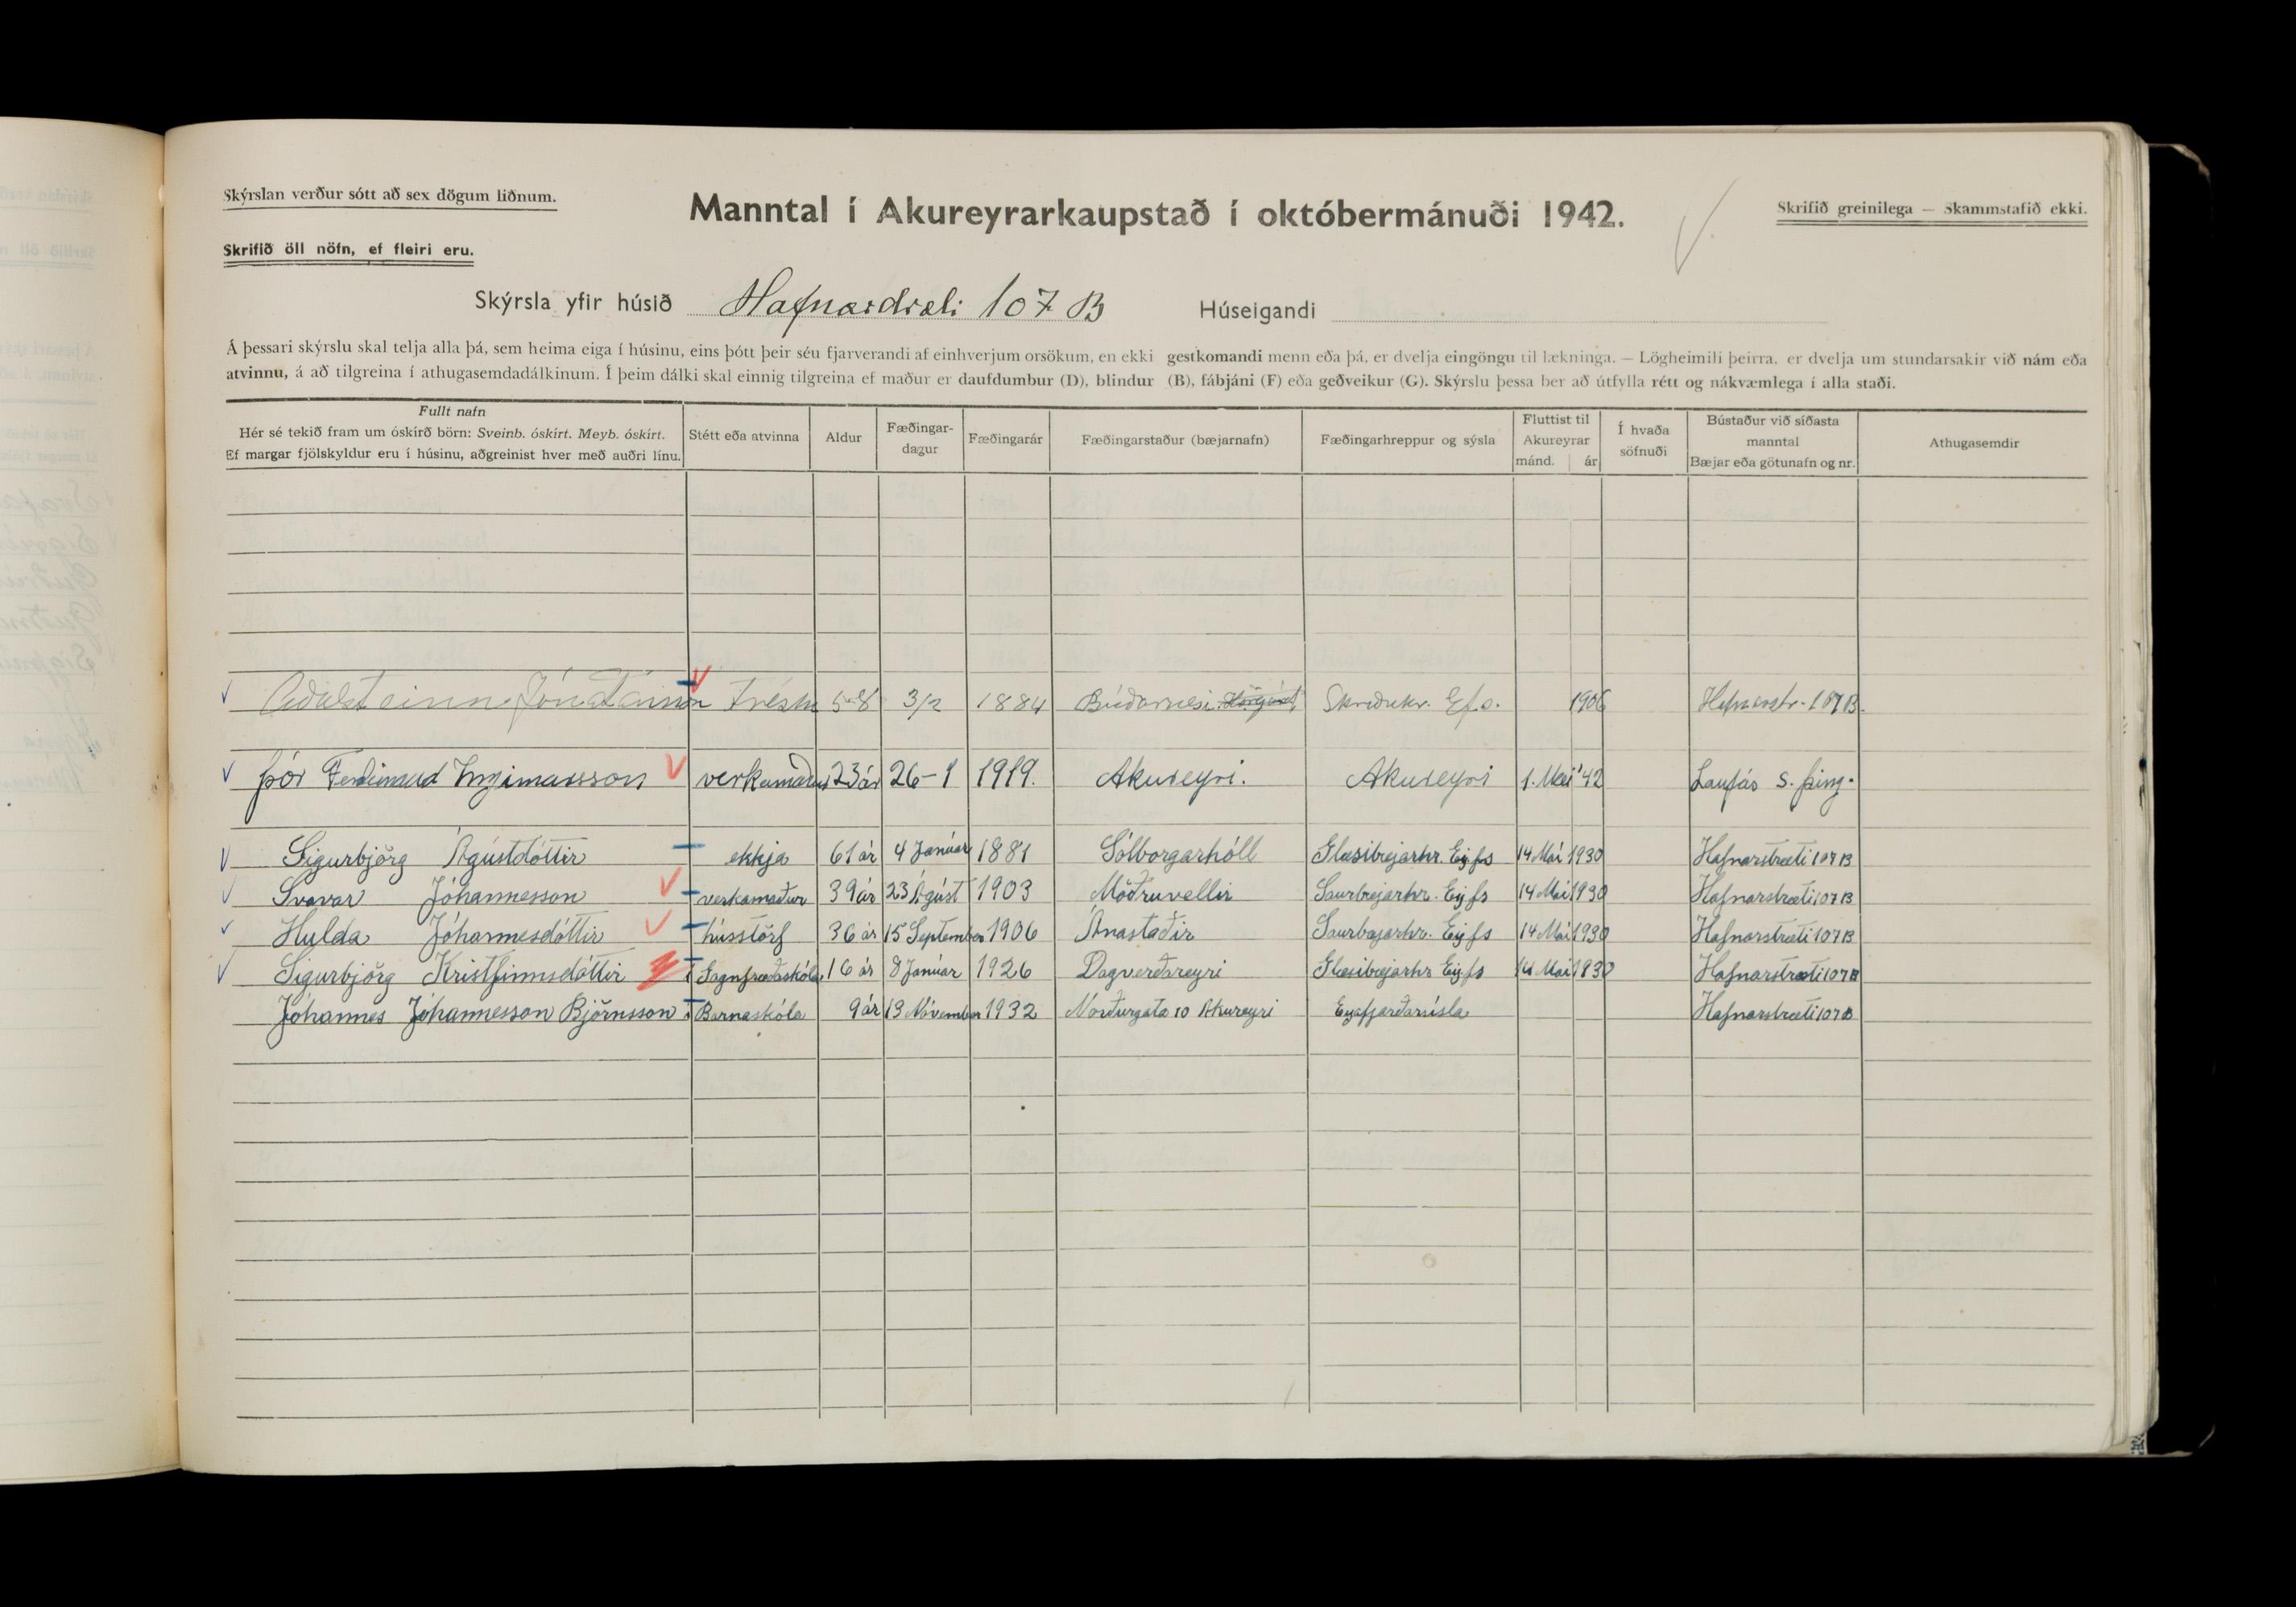 Skýrslan verður sótt að sex dögum liðnum.
Manntal í Akureyrarkaupstað í októbermánuði 1942.
Skrifið greinilega — Skammstafið ekki.
Skrifið öll nöfn, ef fleiri eru.
Skýrsla yfir húsið Hafnarstræti 107 B Húseigandi
Á þessari skýrslu skal telja alla þá, sem heima eiga í húsinu, eins þótt þeir séu fjarverandi af einhverjum orsökum, en ekki gestkomandi menn eða þá, er dvelja eingöngu til lækninga. — Lögheimili þeirra, er dvelja um stundarsakir við nám eða
atvinnu, á að tilgreina í athugasemdadálkinum. Í þeim dálki skal einnig tilgreina ef maður er daufdumbur (D), blindur (B), fábjáni (F) eða geðveikur (G). Skýrslu þessa ber að útfylla rétt og nákvæmlega í alla staði.
Fullt nafn
Hér sé tekið fram um óskírð börn: Sveinb. óskírt. Meyb. óskírt.
Ef margar fjölskyldur eru í húsinu, aðgreinist hver með auðri línu.
Stétt eða atvinna
Aldur
Fæðingar-
dagur
Fæðingarár
Fæðingarstaður (bæjarnafn)
Fæðingarhreppur og sýsla
Fluttist til
Akureyrar
mánd. ár
Í hvaða
söfnuði
Bústaður við síðasta
manntal
Bæjar eða götunafn og nr.
Athugasemdir
Aðalsteinn Jónatansson Trésm 58 3/2 1884 Búðarnesi Skriðuhr. Ef.s. 1906 Hafnarstr. 107 B.
Þór Ferdinand Ingimarsson verkamaður 23 ár 26-1 1919. Akureyri. Akureyri 1. Maí '42 Laufás S. Þing.
Sigurbjörg Ágústdóttir ekkja 61 ár 4 Janúar 1881 Sólborgarhóll Glæsibæjarhr. Eyjfs 14 Maí 1930 Hafnarstræti 107 B
Svavar Jóhannesson verkamaður 39 ár 23 Ágúst 1903 Möðruvellir Saurbæjarhr. Eyjfs 14 Maí 1930 Hafnarstræti 107 B
Hulda Jóhannesdóttir hússtörf 36 ár 15 September 1906 Ánastaðir Saurbæjarhr. Eyjfs 14 Maí 1930 Hafnarstræti 107 B
Sigurbjörg Kristfinnsdóttir Í Gagnfræðaskóla 16 ár 8 Janúar 1926 Dagverðareyri Glæsibæjarhr Eyjfs 14 Maí 1930 Hafnarstræti 107 B
Jóhannes Jóhannesson Björnsson Í Barnaskóla 9 ár 13 Nóvember 1932 Norðurgata 10 Akureyri Eyjafjarðarsísla Hafnarstræti 107 B